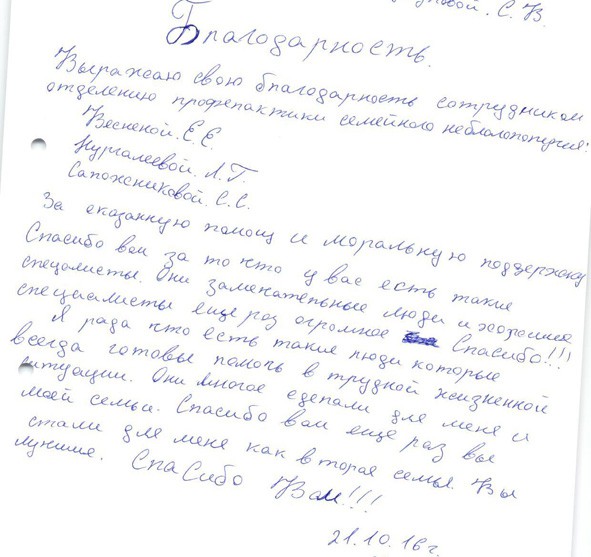 С. В.
Благодарность.
Выражаю свою благодарность сотрудником
отделению профепактики семейного неблапопучия:
Весненой. Е. Е.
Нургалеевой. Л. Г.
Сапожсниковой. С. С.
За оказанную помощ и моральную поддержку
Спасибо вам за то что у вас есть такие
спецалисты. Они замечательные люди и хорошие
специалисты еще раз огромное Спасибо!!!
Я рада что есть такие люди которые
всегда готовы помочь в трудной жизненной
ситуации. Они многое сделали для меня и
моей семьи. Спасибо вам еще раз вы
стали для меня как вторая семья. Вы
лучшие. Спасибо Вам!!!
21.10.16 г.